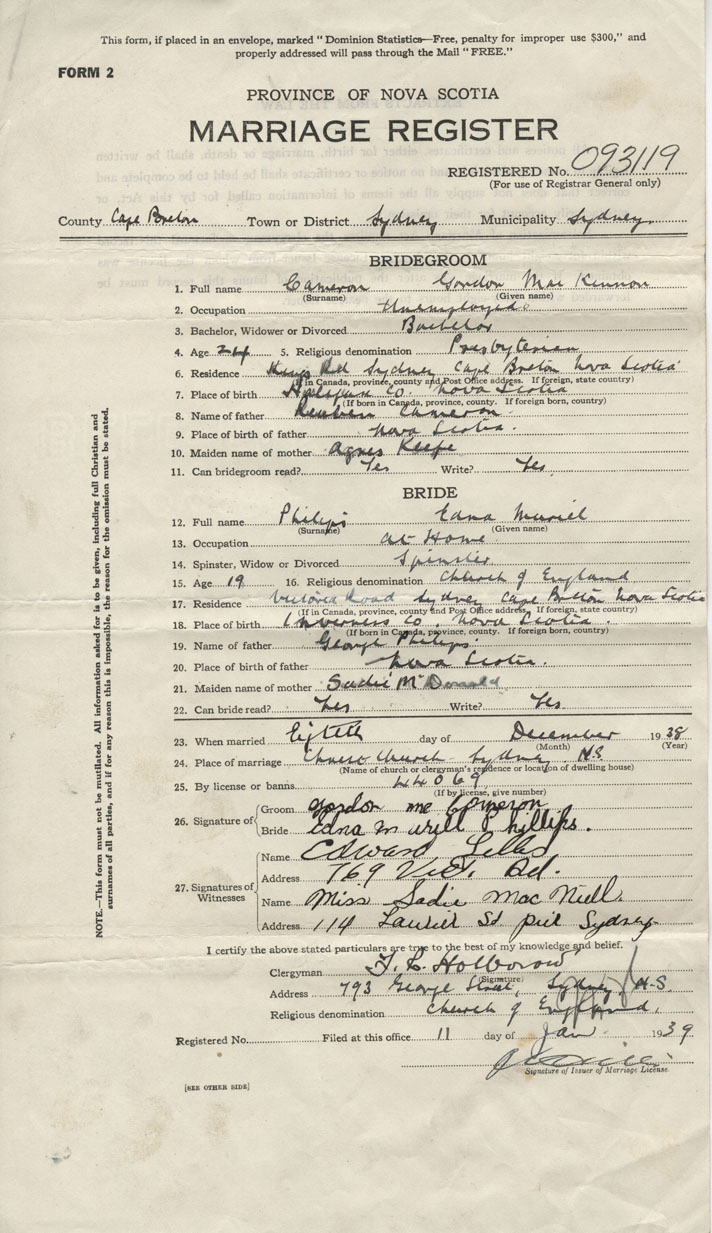 This form, if placed in an envelope, marked "Dominion Statistics—Free, penalty for improper use $300," and
properly addressed will pass through the Mail "FREE."
FORM 2
PROVINCE OF NOVA SCOTIA
MARRIAGE REGISTER
REGISTERED No. 093119
(For use of Registrar General only)
County Cape Breton Town or District Sydney Municipality Sydney
BRIDEGROOM
1. Full name Cameron Gordon MacKinnon
(Surname) (Given name)
2. Occupation Unemployed
3. Bachelor, Widower or Divorced Bachelor
4. Age 5. Religious denomination Presbyterian
6. Residence Kings Rd Sydney Cape Breton Nova Scotia
(If in Canada, province, county and Post Office address. If foreign, state country)
7. Place of birth Halifax Co. Nova Scotia
(If born in Canada, province, county. If foreign born, country)
8. Name of father Reuben Cameron
9. Place of father Nova Scotia.
10. Maiden name of mother Agnes Keefe
11. Can bridegroom read? Yes Write? Yes
BRIDE
12. Full name Philips Edna Muriel
(Surname) (Given name)
13. Occupation at Home
14. Spinster, Widow or Divorced Spinster
15. Age 19 16. Religious denomination Church of England
17. Residence Victoria Road Sydney Cape Breton Nova Scotia
(If in Canada, province, county and Post Office address. If foreign, state country)
18. Place of birth Inverness Co. Nova Scotia.
(If born in Canada, province, county. If foreign born, country)
19. Name of father George Philips.
20. Place of birth of father Nova Scotia.
21. Maiden name of mother Sadie McDonald
22. Can bride read? Yes Write? Yes
23. When married day of December 1938
(Month) (Year)
24. Place of marriage Church Sydney N.S.
(Name of church or clergyman's residence or location of dwelling house)
25. By license or banns 44069
(If by license, give number)
26. Signature of Groom Gordon Mc Cameron
Bride Edna Phillips.
27. Signatures of Witnesses
Name Edward
Address 769 Vict. Rd.
Name Miss Sadie MacNeill
Address 114 Laurier St Sydney
I certify the above stated particulars are true to the best of my knowledge and belief.
Clergyman Holborow
(Signature)
Address 793 George Street, Sydney, N.S.
Religious denomination Church of England.
Registered No. Filed at this office 11 day of Jan 1939
Signature of Issuer of Marriage License.
[SEE OTHER SIDE]
NOTE.—This form must not be mutilated. All information asked for is to be given, including full Christian and
surnames of all parties, and if for any reason this is impossible, the reason for the omission must be stated.